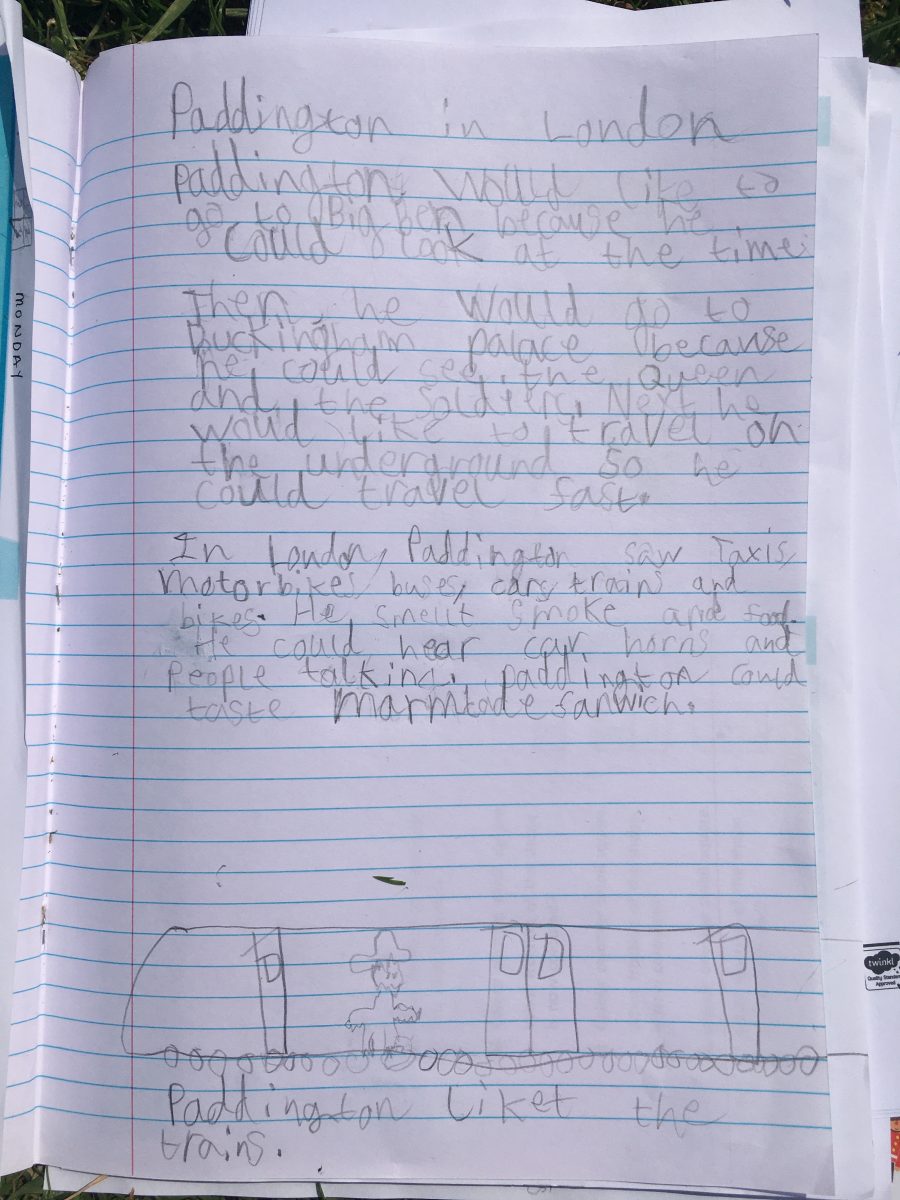 Paddington in London
Paddington would like to
go to Big ben because he
could look at the time.
Then, he would go to
Buckingham palace because
he could see the Queen
and the soldier. Next he
woud like to travel on
the underground so he
could travel fast.
In London, Paddington saw Taxis,
motorbikes, buses, cars, trains and
bikes. He smellt smoke and food.
He could hear car horns and
People talking. paddington could
taste marmlade sanwich.
Paddington liket the
trains.
MONDAY
twinkl
Quality Standard
Approved